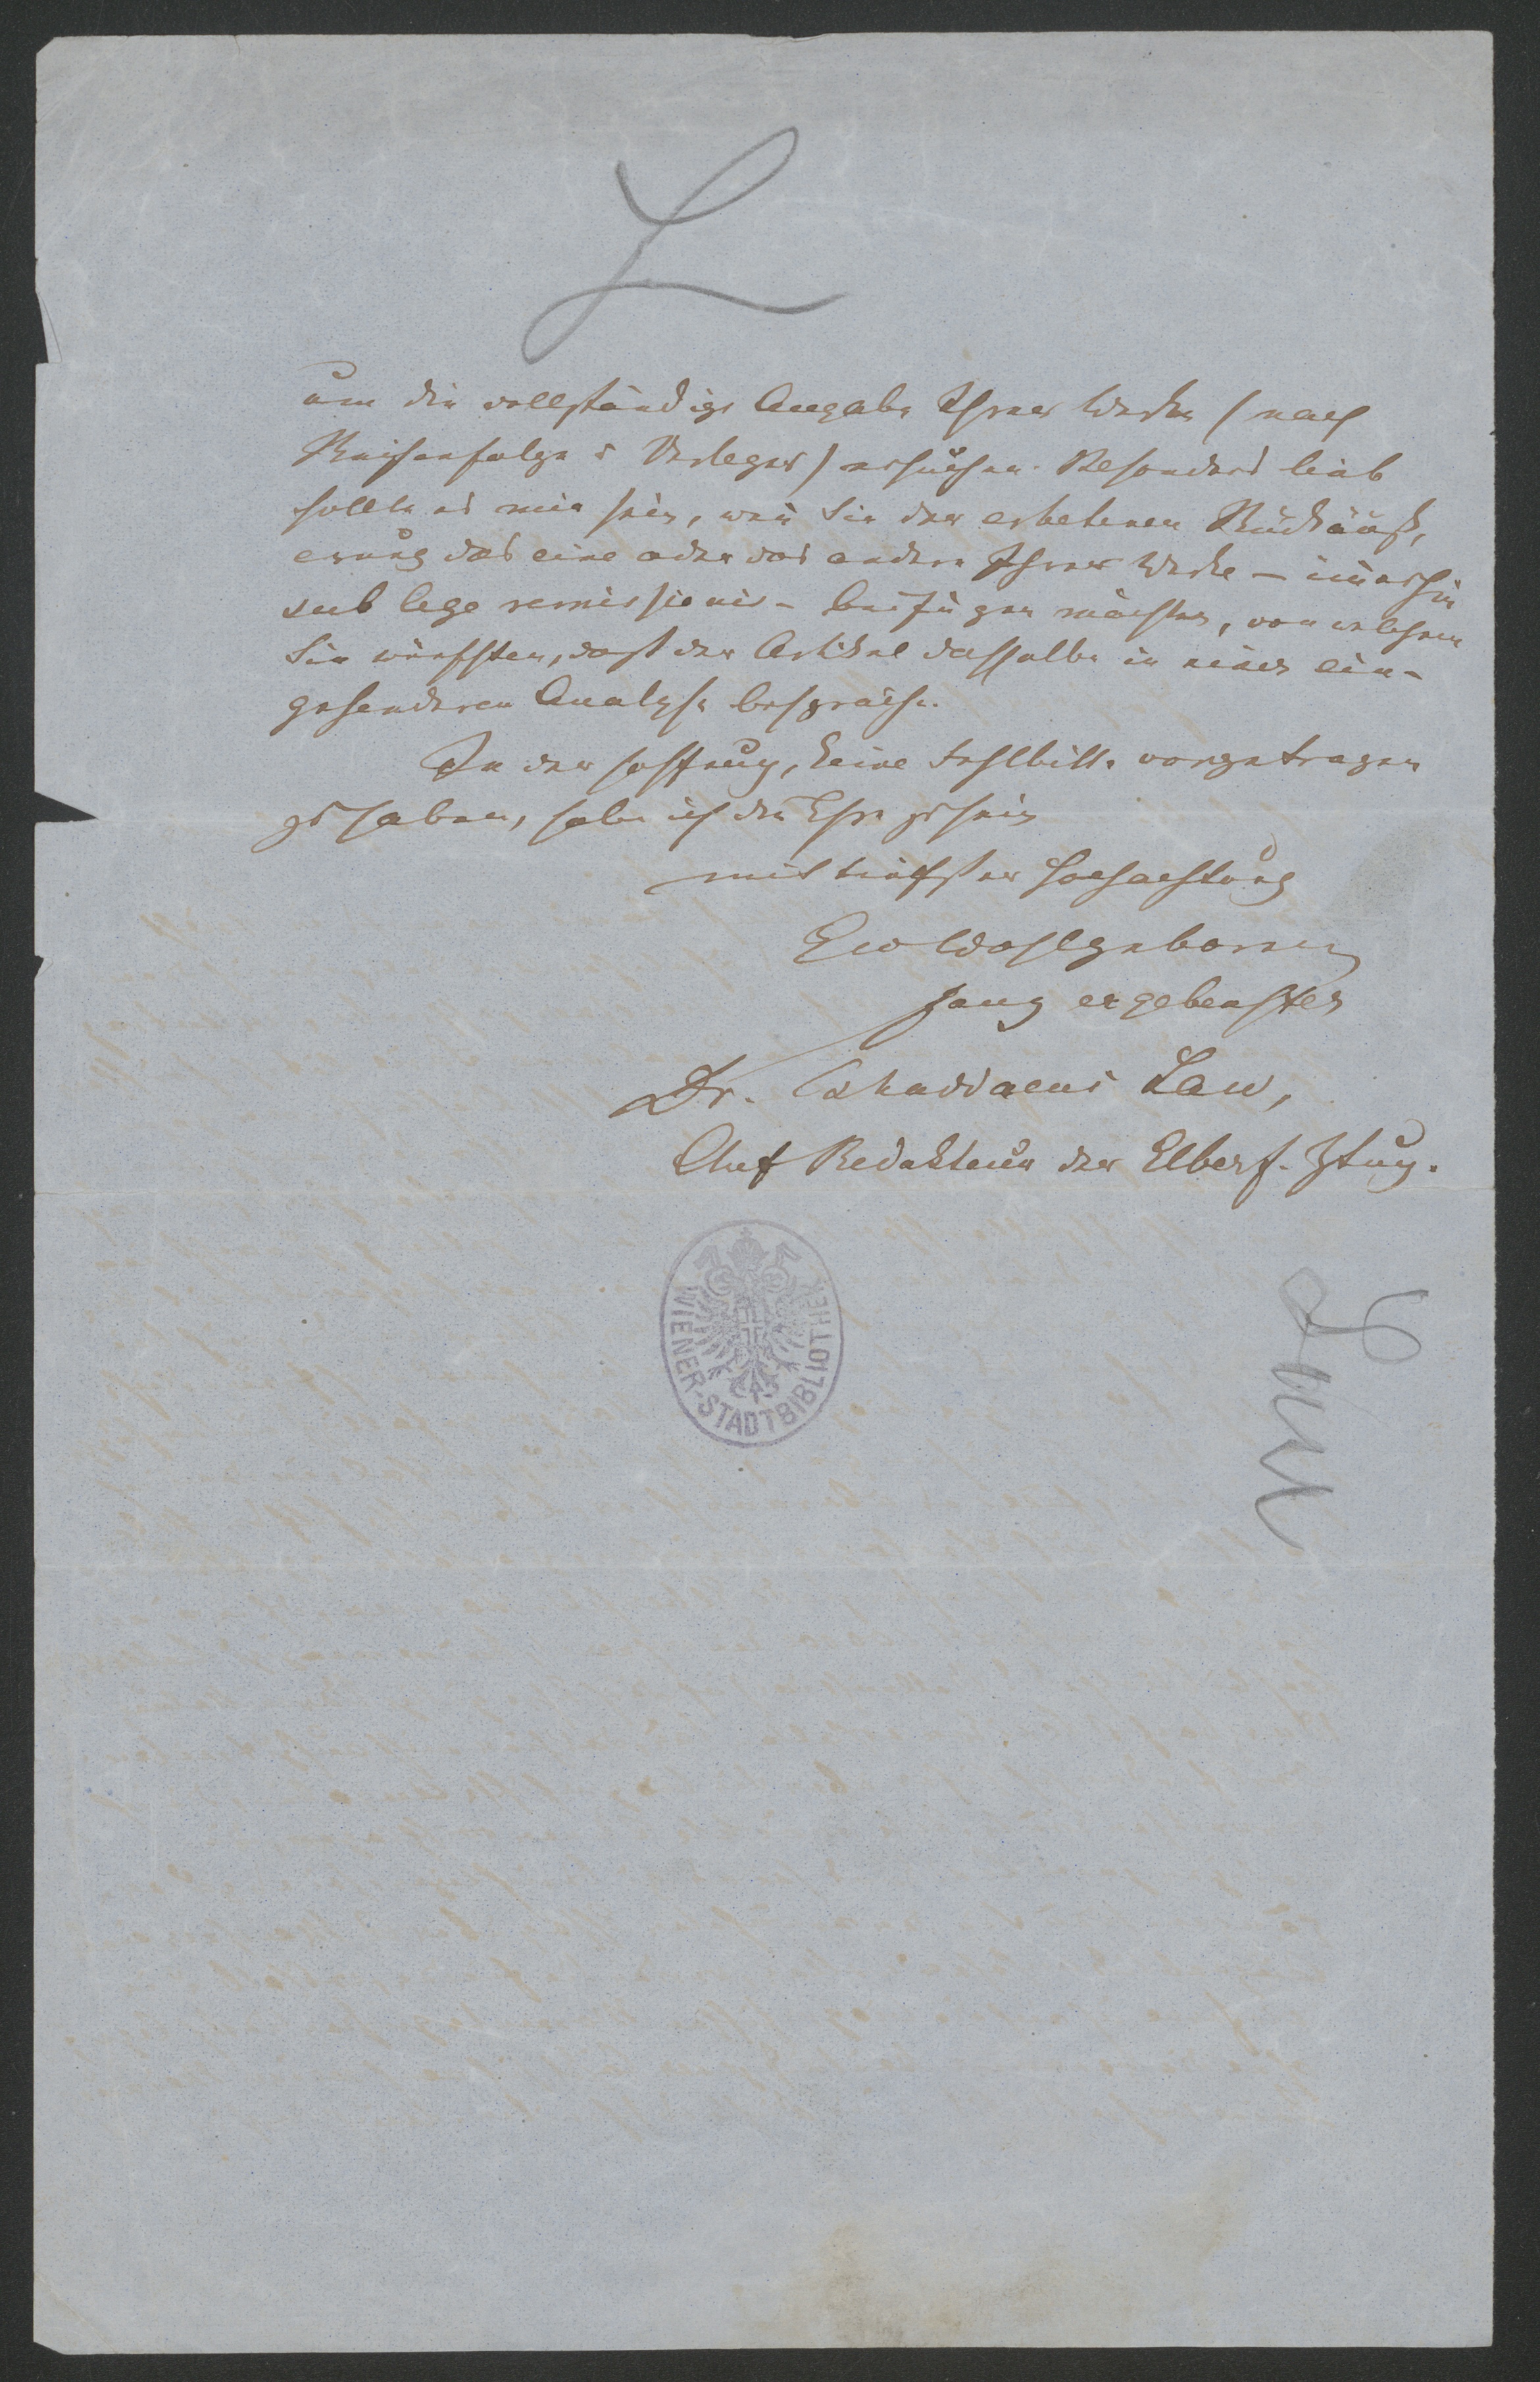 L
um die vollständige Angabe Ihrer Werke (nach
Reihenfolge u Verleger) ersuchen. Besonders lieb
sollte es mir sein, wenn Sie der erbetenen Rückäuß,
erung das eine oder das andere Ihrer Werke — immerhin
sub lege remissionis – beifügen möchten, von welchem
Sie wünschten, daß der Artikel dasselbe in einer ein-
gehenderen Analyse bespräche.
In der Hoffnung, keine Fehlbitte vorgetragen
zu haben, habe ich die Ehre zu sein
mit tiefster Hochachtung
Ew Wohlgeboren
ganz ergebenster
Dr. Thaddaeus Lau,
Chef Redakteur der Elberf. Ztung.
WIENER-STADTBIBLIOTHEK
Lau